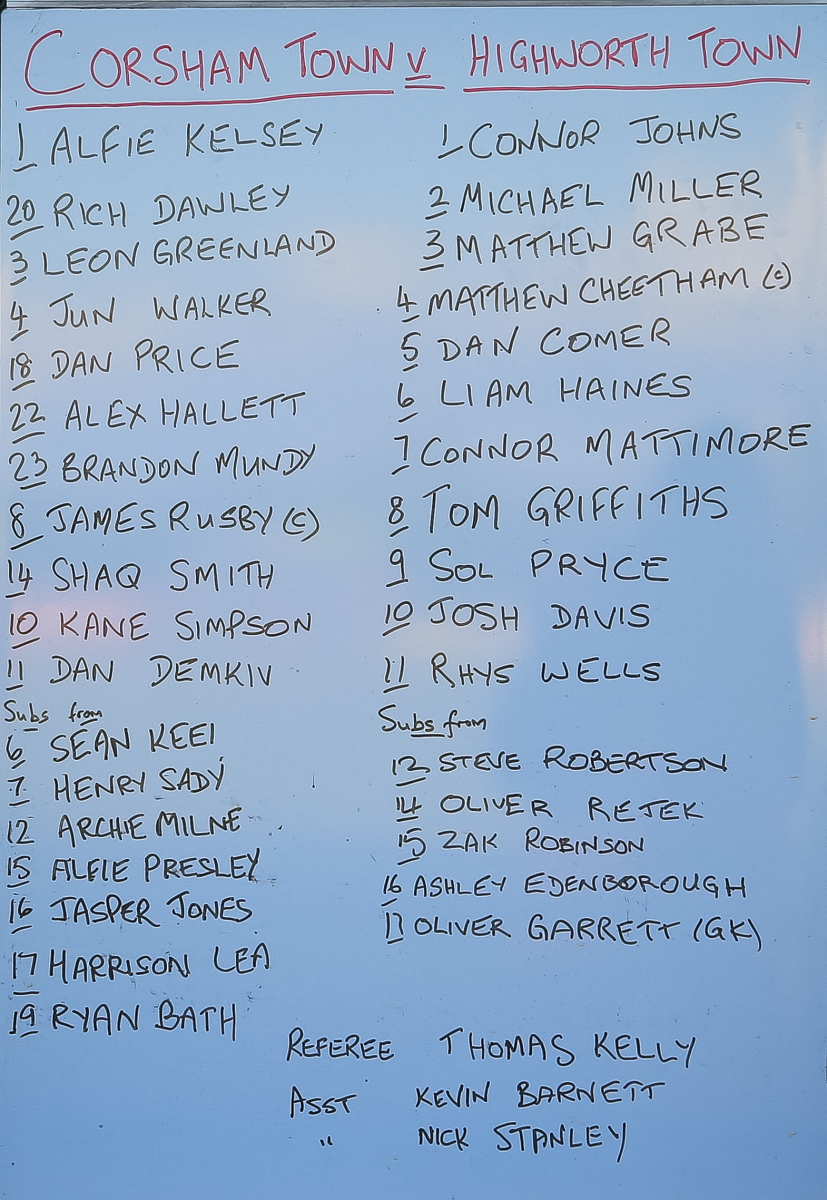 CORSHAM TOWN v HIGHWORTH TOWN
1 ALFIE KELSEY
20 RICH DAWLEY
3 LEON GREENLAND
4 JUN WALKER
18 DAN PRICE
22 ALEX HALLETT
23 BRANDON MUNDY
8 JAMES RUSBY (C)
14 SHAQ SMITH
10 KANE SIMPSON
11 DAN DEMKIV
Subs from
6 SEAN KEEI
7 HENRY SADY
12 ARCHIE MILNE
15 ALFIE PRESLEY
16 JASPER JONES
17 HARRISON LEA
19 RYAN BATH
1 CONNOR JOHNS
2 MICHAEL MILLER
3 MATTHEW GRABE
4 MATTHEW CHEETHAM (C)
5 DAN COMER
6 LIAM HAINES
7 CONNOR MATTIMORE
8 TOM GRIFFITHS
9 SOL PRYCE
10 JOSH DAVIS
11 RHYS WELLS
Subs from
12 STEVE ROBERTSON
14 OLIVER REJEK
15 ZAK ROBINSON
16 ASHLEY EDENBOROUGH
17 OLIVER GARRETT (GK)
REFEREE THOMAS KELLY
ASST KEVIN BARNETT
" NICK STANLEY